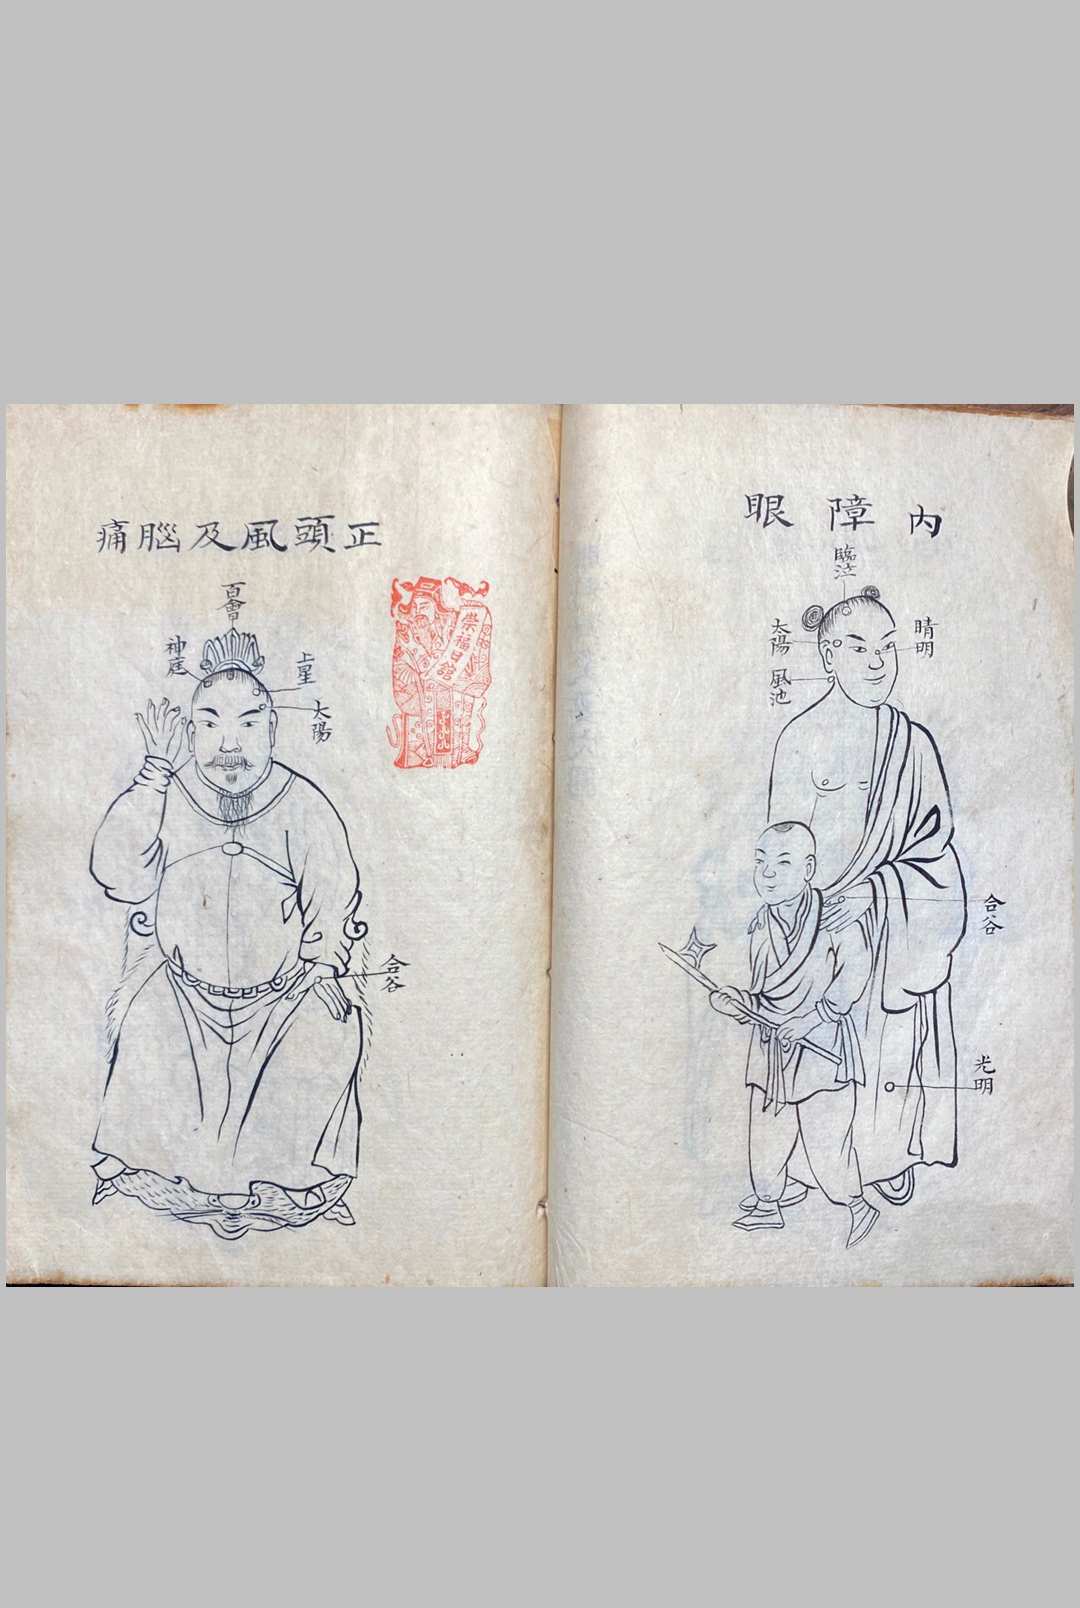 內障眼
臨泣
晴明
太陽
風池
合谷
光明
正頭風及腦痛
百會
神庭
上星
太陽
合谷
崇福